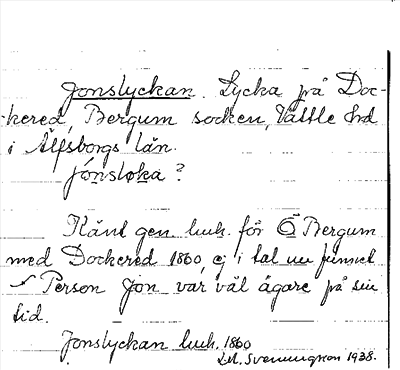 Jonslyckan. Lycka på Doc-
kered, Bergum socken, Vättle hrd
i Älfsborgs län.
jónsløka?
Känt gen. huh. för Ö Bergum
med Dockered 1860, ej i tal nu finnes
Person Jon var väl ägare på sin
tid.
Jonslyckan huh. 1860
Svenungson 1938.